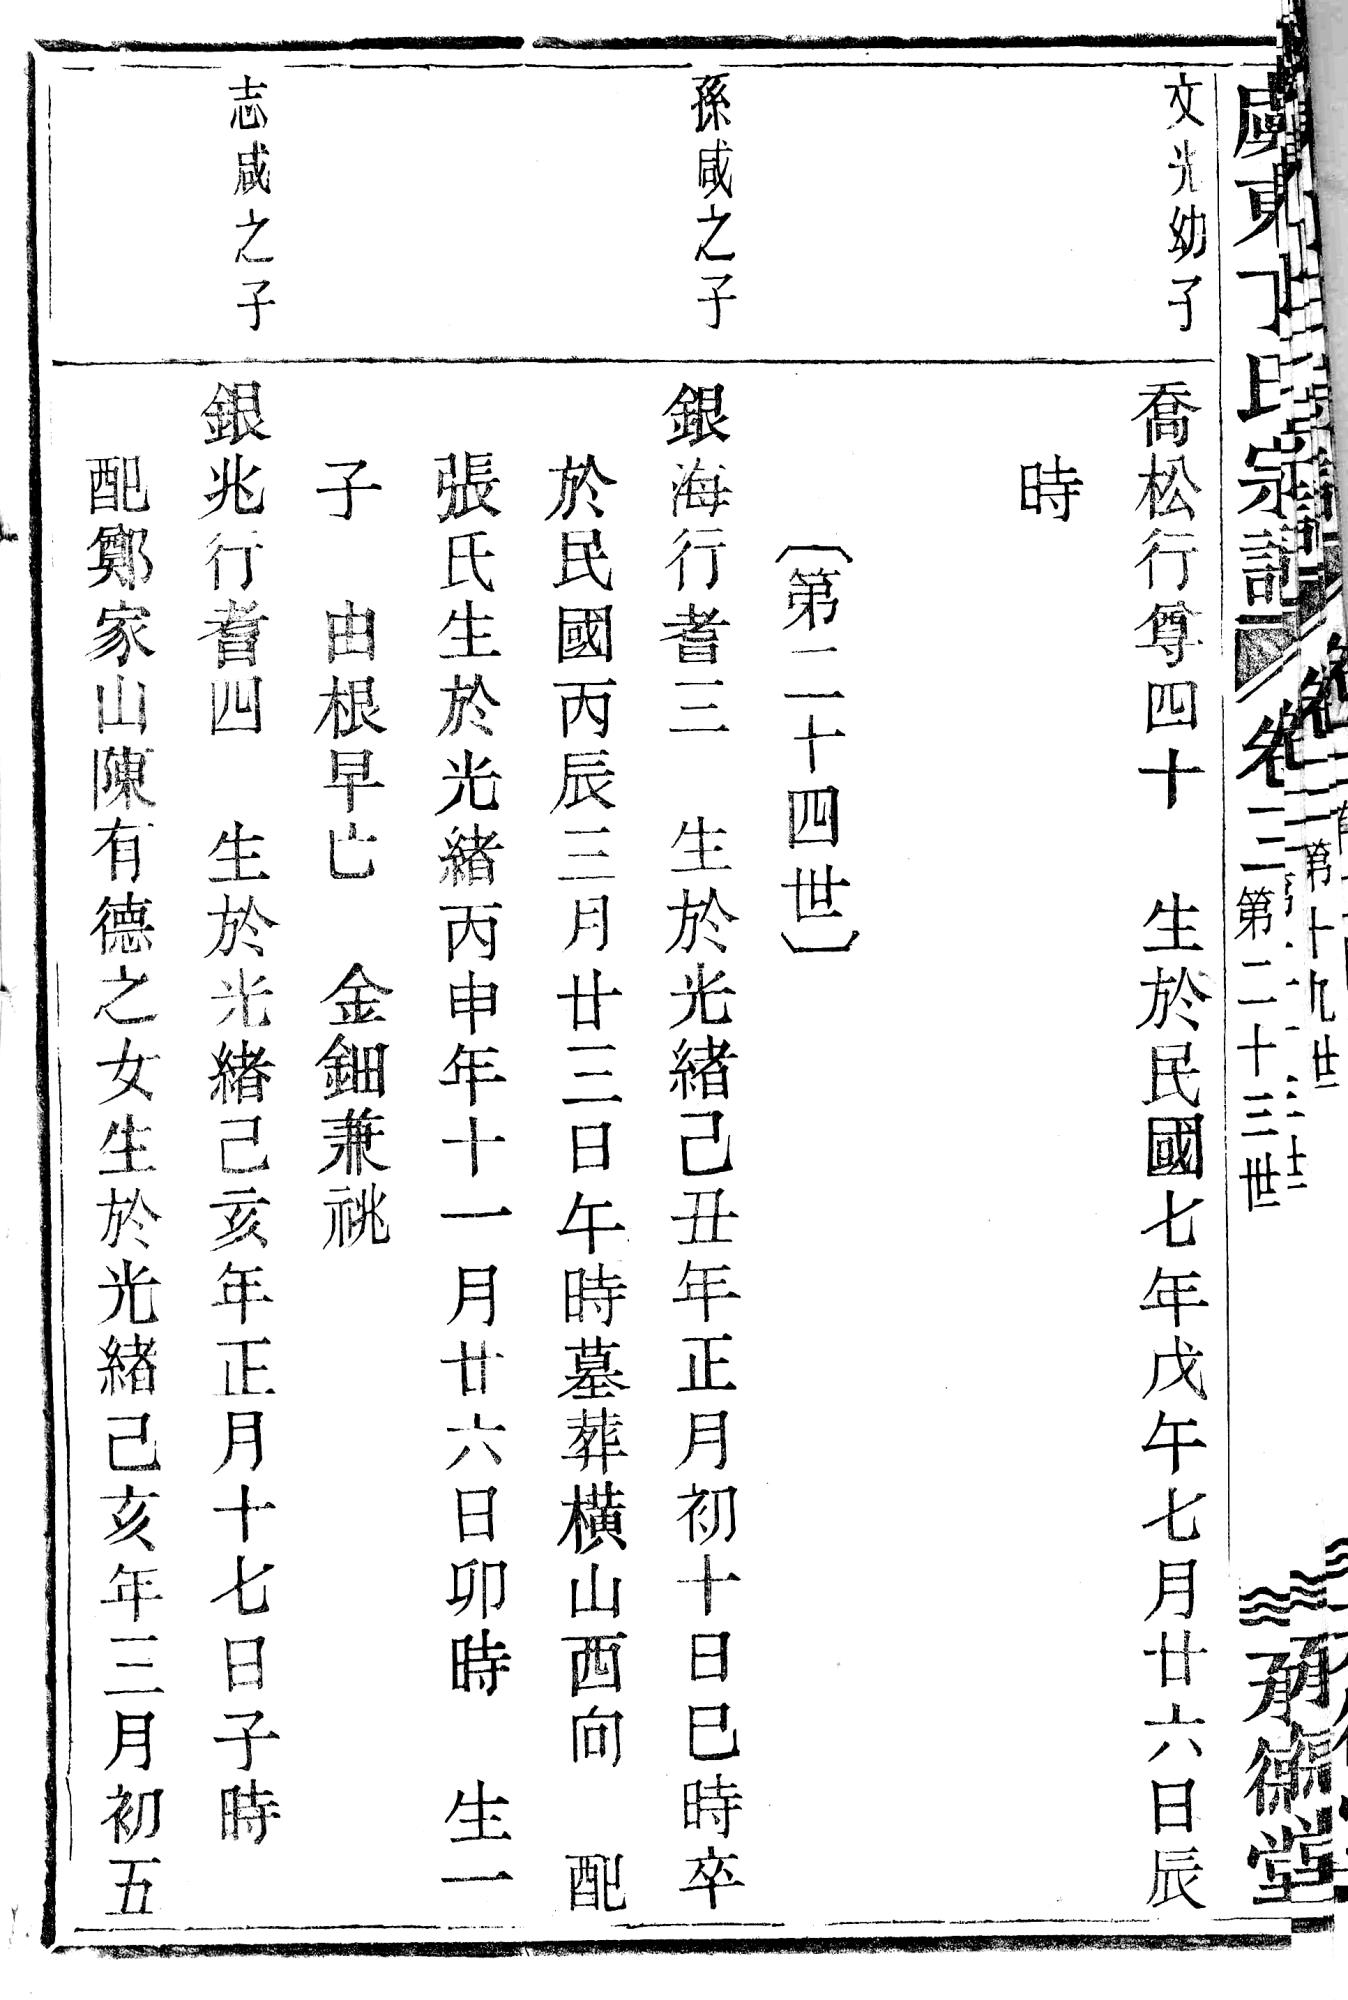 東丁氏宗譜 卷三 第二十三世 承德堂
文光幼子
喬松行尊四十 生於民國七年戊午七月廿六日辰
時
〔第二十四世〕
孫咸之子
銀海行耆三 生於光緒己丑年正月初十日巳時卒
於民國丙辰三月廿三日午時墓葬橫山西向 配
張氏生於光緒丙申年十一月廿六日卯時 生一
子 由根早亡 金鈿兼祧
志咸之子
銀兆行耆四 生於光緒己亥年正月十七日子時
配鄭家山陳有德之女生於光緒己亥年三月初五